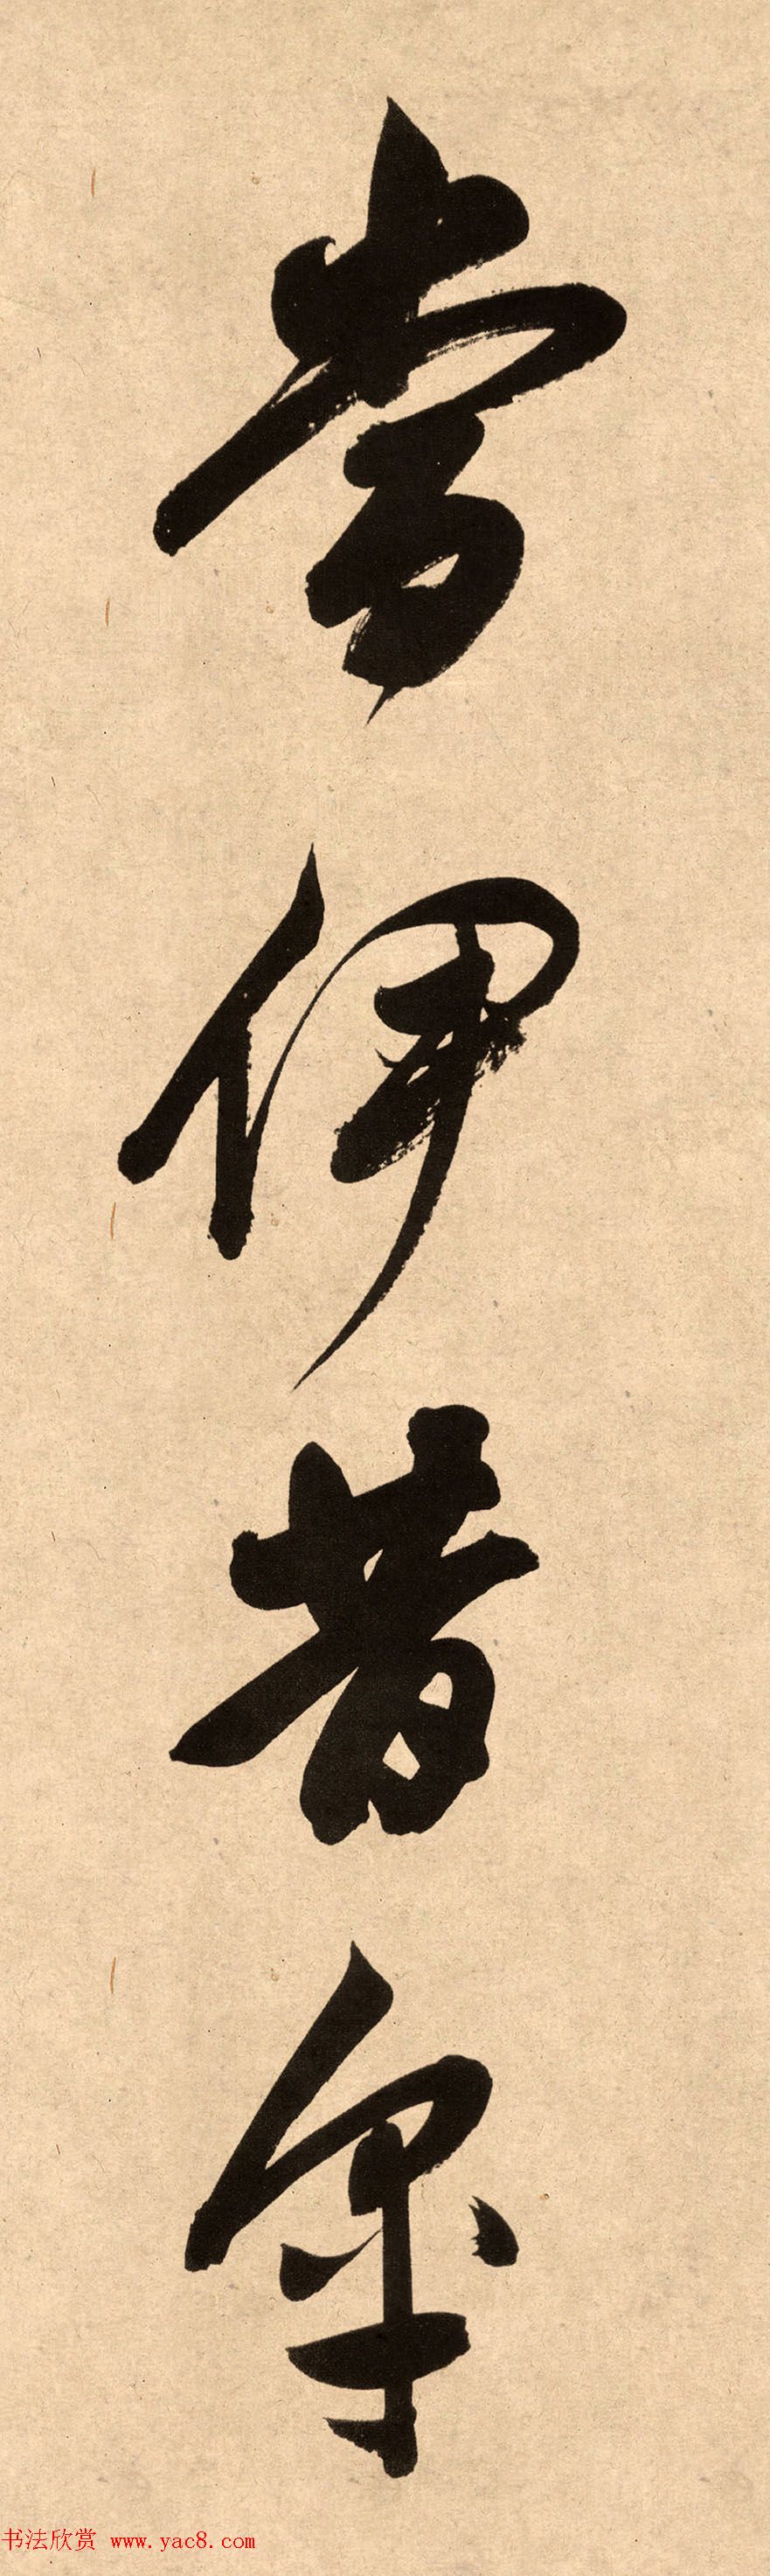 當伊昔
书法欣赏 www.yac8.com